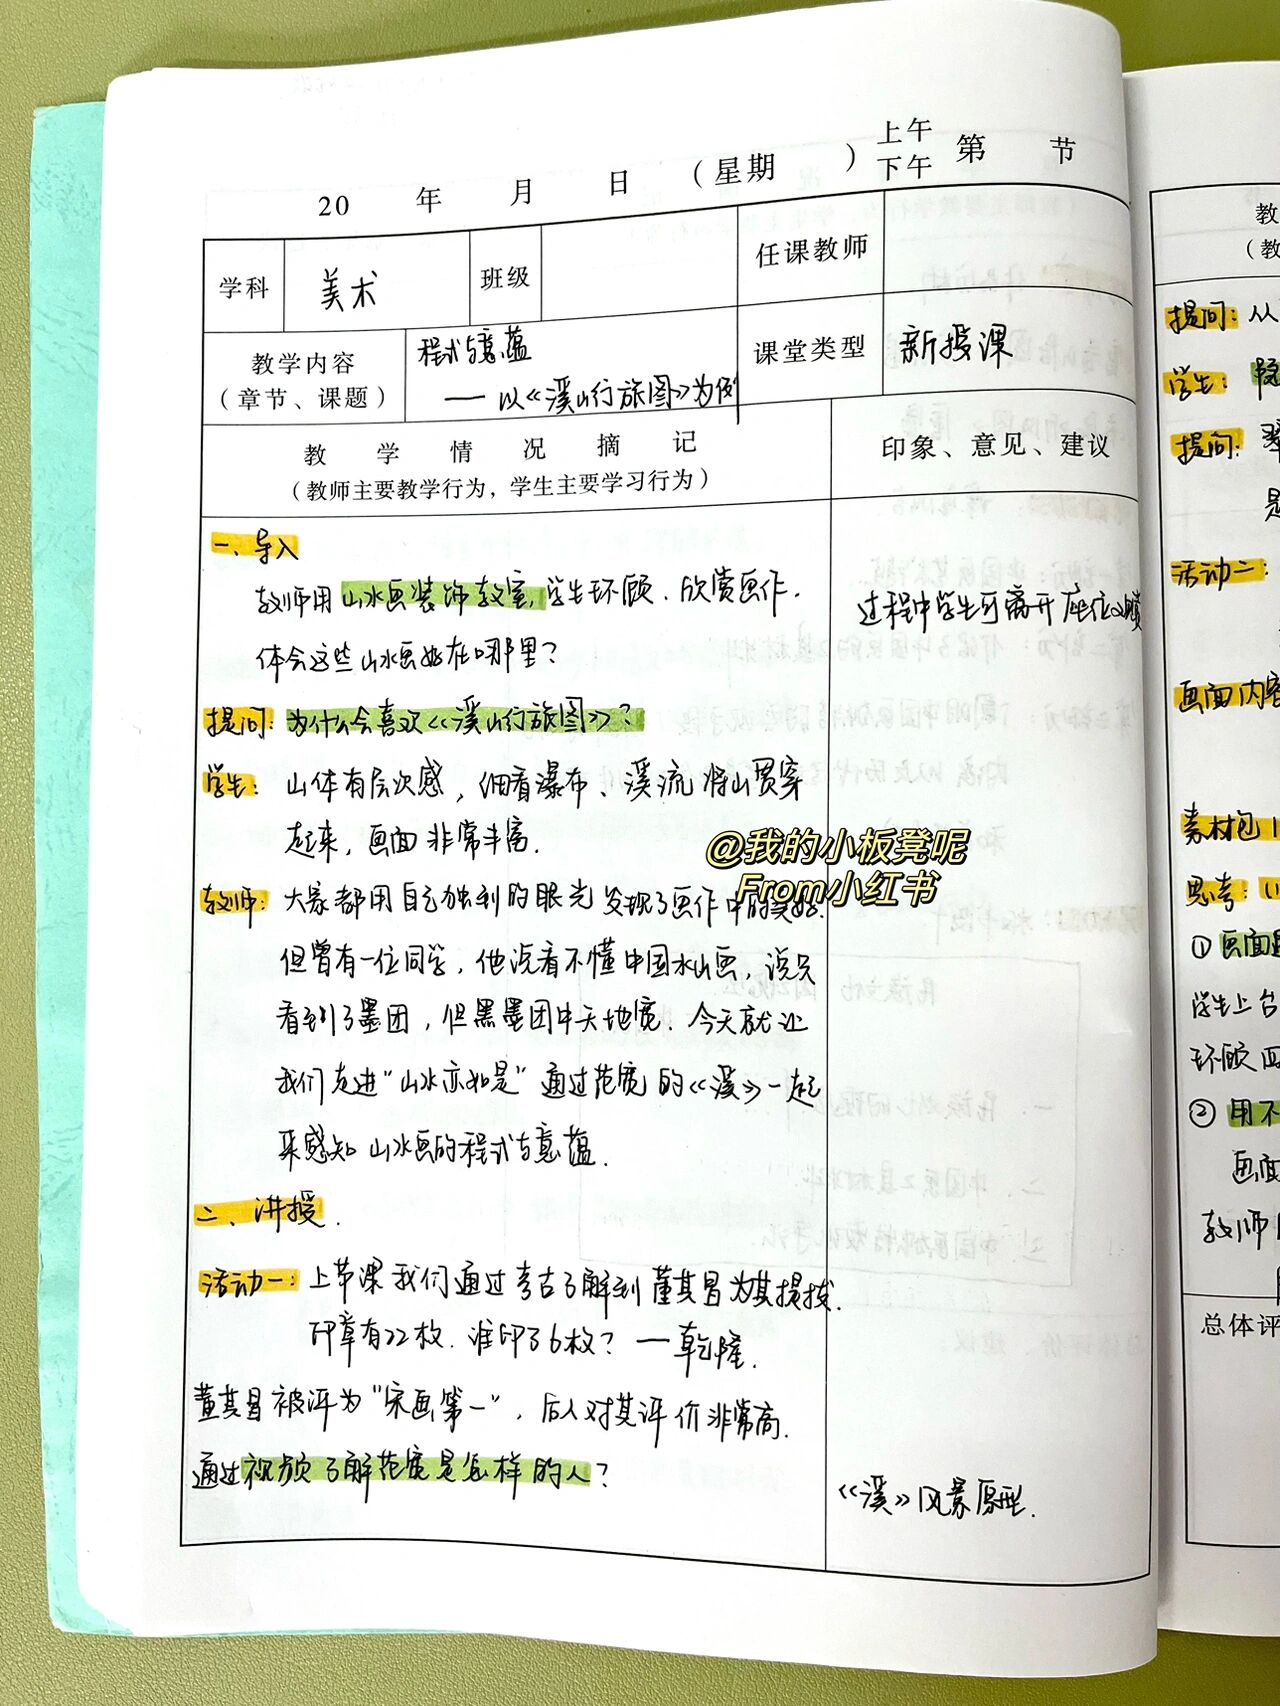 20 年 月 日 （星期 ） 上午 下午 第 节
学科 美术 班级 任课教师
教学内容（章节、课题） 程式与意蕴
——以《溪山行旅图》为例
课堂类型 新授课
教 学 情 况 摘 记
（教师主要教学行为，学生主要学习行为）
印象、意见、建议
一、导入
教师用山水画装饰教室，学生环顾、欣赏画作，
体会这些山水画好在哪里？
过程中学生可离开座位
提问：为什么会喜欢《溪山行旅图》？
学生：山体有层次感，细看瀑布、溪流将山贯穿
起来，画面非常丰富.
教师：大家都用自己独到的眼光发现了画作中的美好.
但曾有一位同学，他说看不懂中国水山画，说只
看到了墨团，但黑墨团中天地宽. 今天就让
我们走进“山水亦如是”通过范宽的《溪》一起
来感知山水画的程式与意蕴.
二、讲授.
活动一：上节课我们通过考古了解到董其昌为其提拔.
印章有22枚. 谁印了6枚？—乾隆.
董其昌被评为“宋画第一”，后人对其评价非常高.
通过视频了解范宽是怎样的人？
《溪》风景原型.
@我的小板凳呢
From小红书
教
（教
提问：从
学生：
提问：
是
活动二：
画面内容
素材包1
思考：(1
①画面
学生上台
环顾四
②用不
画面
教师
总体评